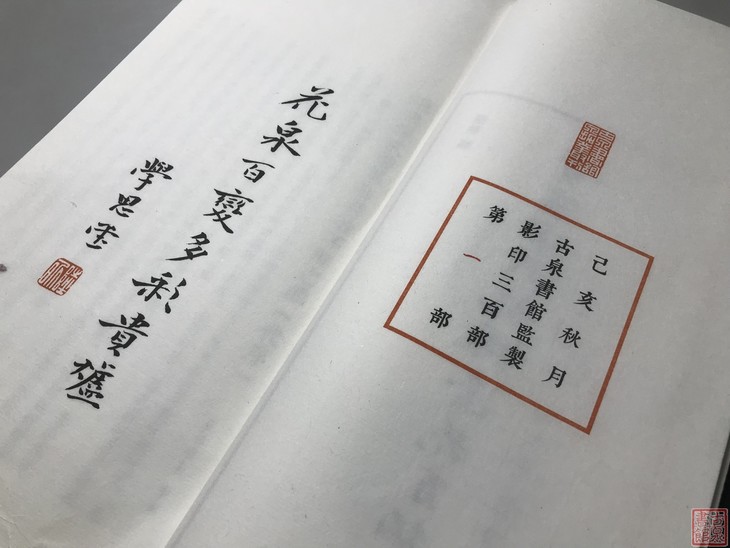 己亥秋月
古泉書館監製
影印三百部
第一部
花泉百變多彩貴
學思堂
古泉書館